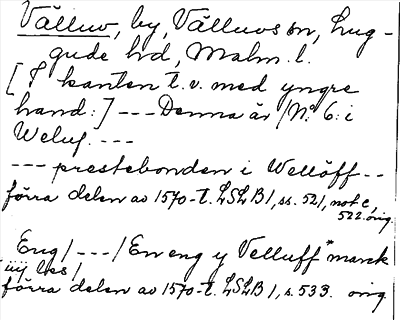 Välluv, by, Välluvs sn, Lug-
gude hd, Malm. l.
[I kanten t. v. med yngre
hand:] --- Denna är /N:o 6: i
Weluf. ---
--- prestebonden i Wellöff --
förra delen av 1570-t. LSLB 1, ss. 521, not c,
522. orig.
Eng/---/ En eng y Velluff marck
iiij les/
förra delen av 1570-t. LSLB 1, s. 533. orig.